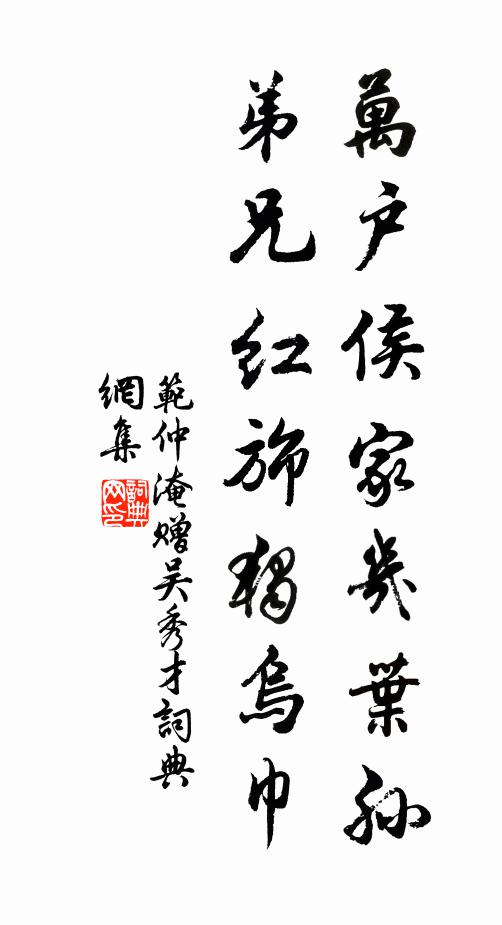 萬戶侯家幾葉孫
弟兄紅旆獨烏巾
範仲淹贈吴秀才詞典
網集
詞典网印